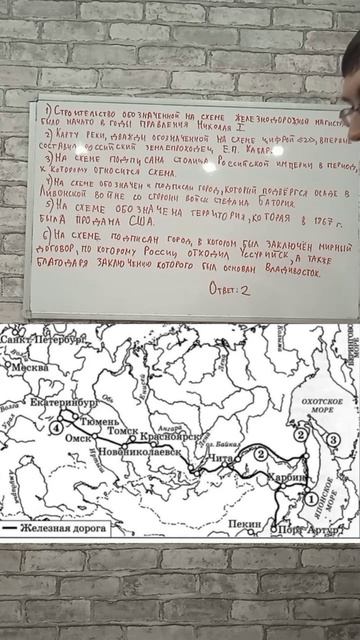 1) Строительство обозначенной на схеме железнодорожной магистр
было начато в годы правления Николая I.
2) Карту реки, дважды обозначенной на схеме цифрой «2», впервы
составил российский землепроходец Е.П. Хабар
3) На схеме подписана столица Российской империи в период,
к которому относится схема.
4) На схеме обозначен и подписан город, который подвергся осаде в
Ливонской войне со стороны войск Стефана Батория.
5) На схеме обозначена территория, которая в 1867 г.
была продана США.
6) На схеме подписан город, в котором был заключён мирный
договор, по которому России отходил Уссурийск, а также
благодаря заключению которого был основан Владивосток.
Ответ: 2
Санкт-Петербург
Москва
Волга
Екатеринбург
Обь
Тюмень
4
Омск
Томск
Ангара
Красноярск
Новониколаевск
Иртыш
оз. Байкал
Лена
Чита
2
2
3
ОХОТСКОЕ
МОРЕ
Харбин
1
ЯПОНСКОЕ
МОРЕ
Пекин
Порт-Артур
Железная дорога